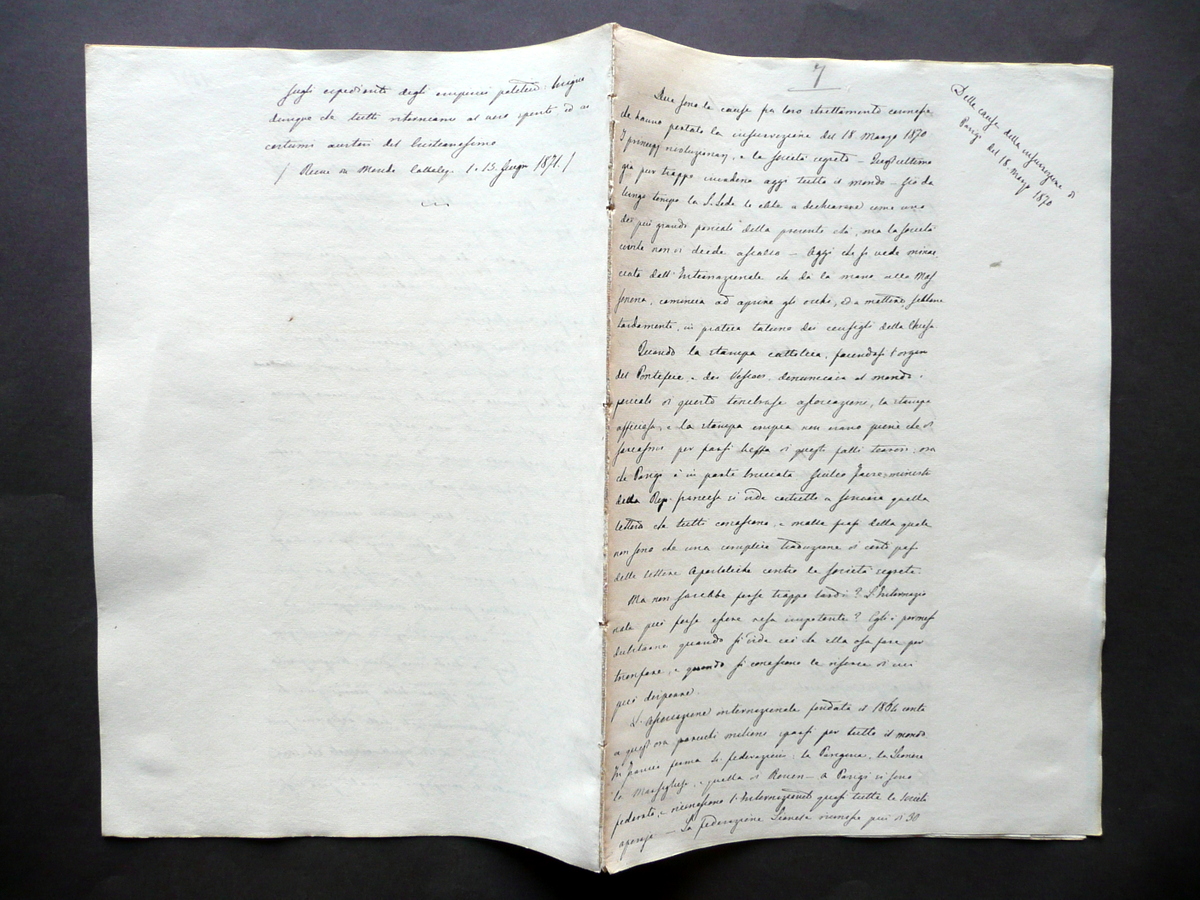 sugli espedienti degli empirici politici. bisogna
dunque che tutti ritorniamo al vero spirito ed ai
costumi austeri del Cristianesimo
/ Riviè in Mondo Cattolico 1. 13. Giugn 1871. /
7
Della cause della insurrezione di
Parigi del 18. Marzo 1870
Due sono le cause fra loro strettamente connesse
che hanno portato la insurrezione del 18. Marzo 1870
I principj rivoluzionarj, e la società segreta — Quest'ultima
già pur troppo invaderà oggi tutto il mondo — Già da
lungo tempo la S. Sede le ebbe a dichiarare come uno
dei più grandi pericoli della presente età, ma la società
civile non vi diede ascolto — Oggi che si vede minac
ciata dall'Internazionale che dà la mano alla Mas
soneria, comincia ad aprire gli occhi, ed a mettere, sebbene
tardamente, in pratica taluno dei consigli della Chiesa.
Quando la stampa cattolica, facendosi l'organo
del Pontefice, e dei Vescovi, denunciava al mondo i
pericoli di questa tenebrosa associazione, la stampa
officiosa, e la stampa empia non erano piene che di
sarcasmi per farsi beffa di questi falli terrori; ora
che Parigi è in parte bruciata Giulio Favre ministro
della Rep. francese si vide costretto a scrivere quella
lettera che tutti conosciamo, e molte frasi della quale
non sono che una semplice traduzione di certe frasi
delle lettere Apostoliche contro le società segrete.
Ma non sarebbe forse troppo tardi? L'Internazio
nale può forse essere resa impotente? Egli è permesso
dubitarne quando si vide ciò che ella osa fare per
trionfare, e quando si conoscono le risorse di cui
può disporre.
L'Associazione internazionale fondata il 1864 conta
a quest'ora parecchi milioni sparsi per tutto il mondo
In Francia forma 4. federazioni: la Parigina, la Lionese
la Marsigliese, e quella di Rouen — A Parigi si sono
federate, e riconoscono l'Internazionale quasi tutte le società
operaje — La federazione Lionese riunisce più di 30